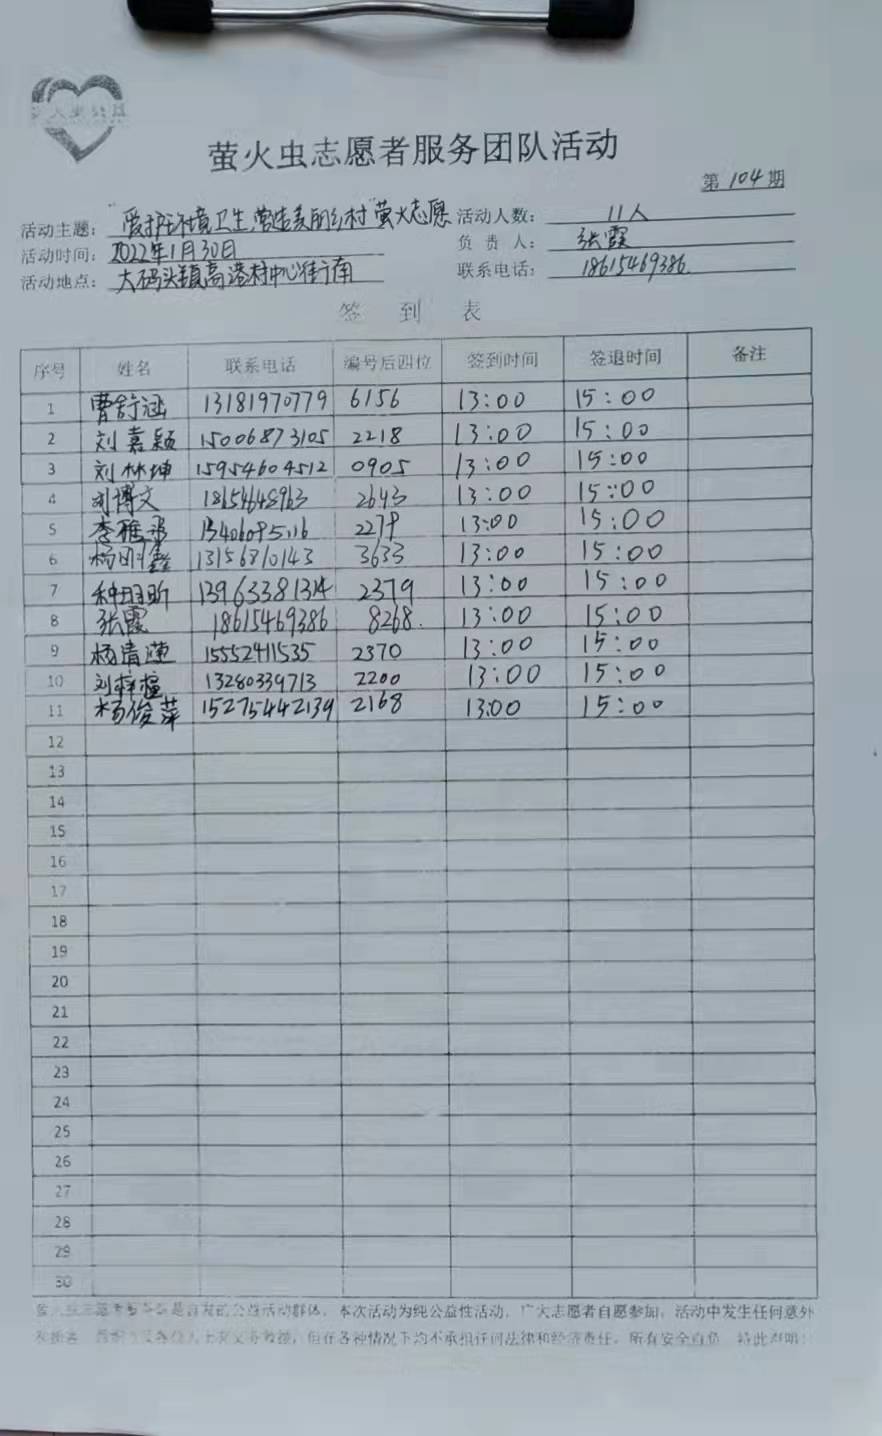 萤火虫公益
萤火虫志愿者服务团队活动
第 104 期
活动主题: "爱护环境卫生,营造美丽乡村"萤火志愿 活动人数: 11人
活动时间: 2022年1月30日 负责人: 张霞
活动地点: 大码头镇高港村中心街南 联系电话: 18615469386
签到表
序号 姓名 联系电话 编号后四位 签到时间 签退时间 备注
1 曹舒涵 13181970779 6156 13:00 15:00
2 刘嘉颖 15006873105 2218 13:00 15:00
3 刘林坤 15954604512 0905 13:00 15:00
4 刘博文 18654648963 2643 13:00 15:00
5 李雅 227 13:00 15:00
6 杨明鑫 13156810143 3633 13:00 15:00
7 种玥昕 13963381314 2379 13:00 15:00
8 张霞 18615469386 8268. 13:00 15:00
9 杨清莲 15552411535 2370 13:00 15:00
10 刘梓楦 13280339713 2200 13:00 15:00
11 杨俊萍 15275442139 2168 13:00 15:00
12
13
14
15
16
17
18
19
20
21
22
23
24
25
26
27
28
29
30
萤火虫志愿者服务队是自发的公益活动群体, 本次活动为纯公益性活动, 广大志愿者自愿参加, 活动中发生任何意外
但在各种情况下均不承担任何法律和经济责任, 所有安全自负 特此声明: